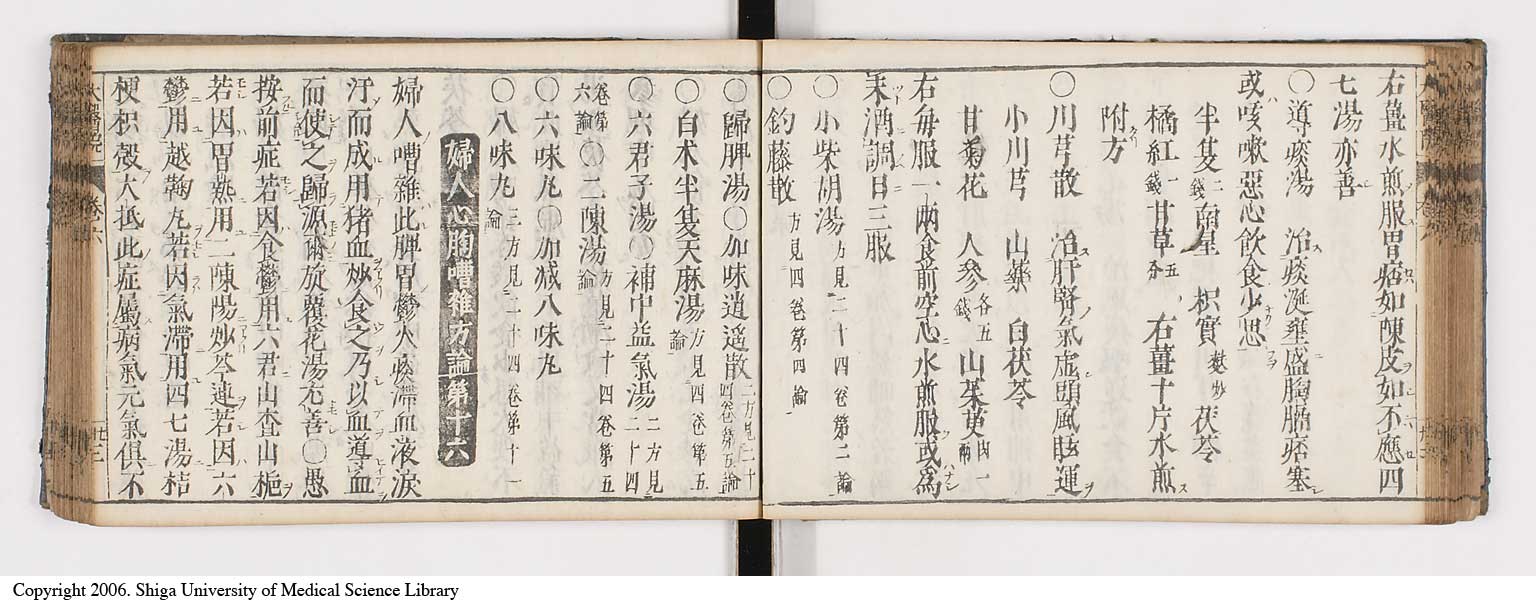 右薑水煎服胃痞如陳皮如不應四
七湯亦善
○導痰湯　治痰涎壅盛胸膈痞塞
或咳嗽惡心飲食少思
半夏二錢南星　枳實麩炒茯苓
橘紅一錢甘草五分　右薑十片水煎
附方
○川芎散　治肝腎氣虛頭風眩運
小川芎　山藥　白茯苓
甘菊花　人參各五錢山茱萸肉一兩
右毎服一兩食前空心水煎服或爲
末酒調日三服
○小柴胡湯方見二十四卷第二論
○釣藤散方見四卷第四論
○歸脾湯○加味逍遙散二方見二十四卷第五論
○白朮半夏天麻湯方見四卷第五論
○六君子湯○補中益氣湯二方見二十四
卷第六論○二陳湯方見二十四卷第五論
○六味丸○加減八味丸
○八味丸三方見二十四卷第十一論
婦人心胸嘈雜方論第十六
婦人嘈雜此脾胃鬱火痰滯血液淚
汗而成用猪血炒食之乃以血導血
而使之歸源爾旋覆花湯尤善○愚
按前症若因食鬱用六君山查山梔
若因胃熱用二陳陽炒芩連若因六
鬱用越鞠丸若因氣滯用四七湯桔
梗枳殼大抵此症屬病氣元氣俱不
卷六
廿三
Copyright 2006. Shiga University of Medical Science Library